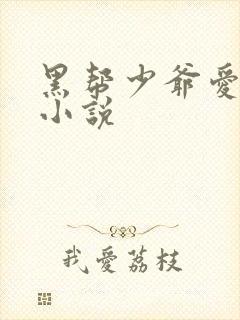 黑帮少爷爱
小説
我爱荔枝